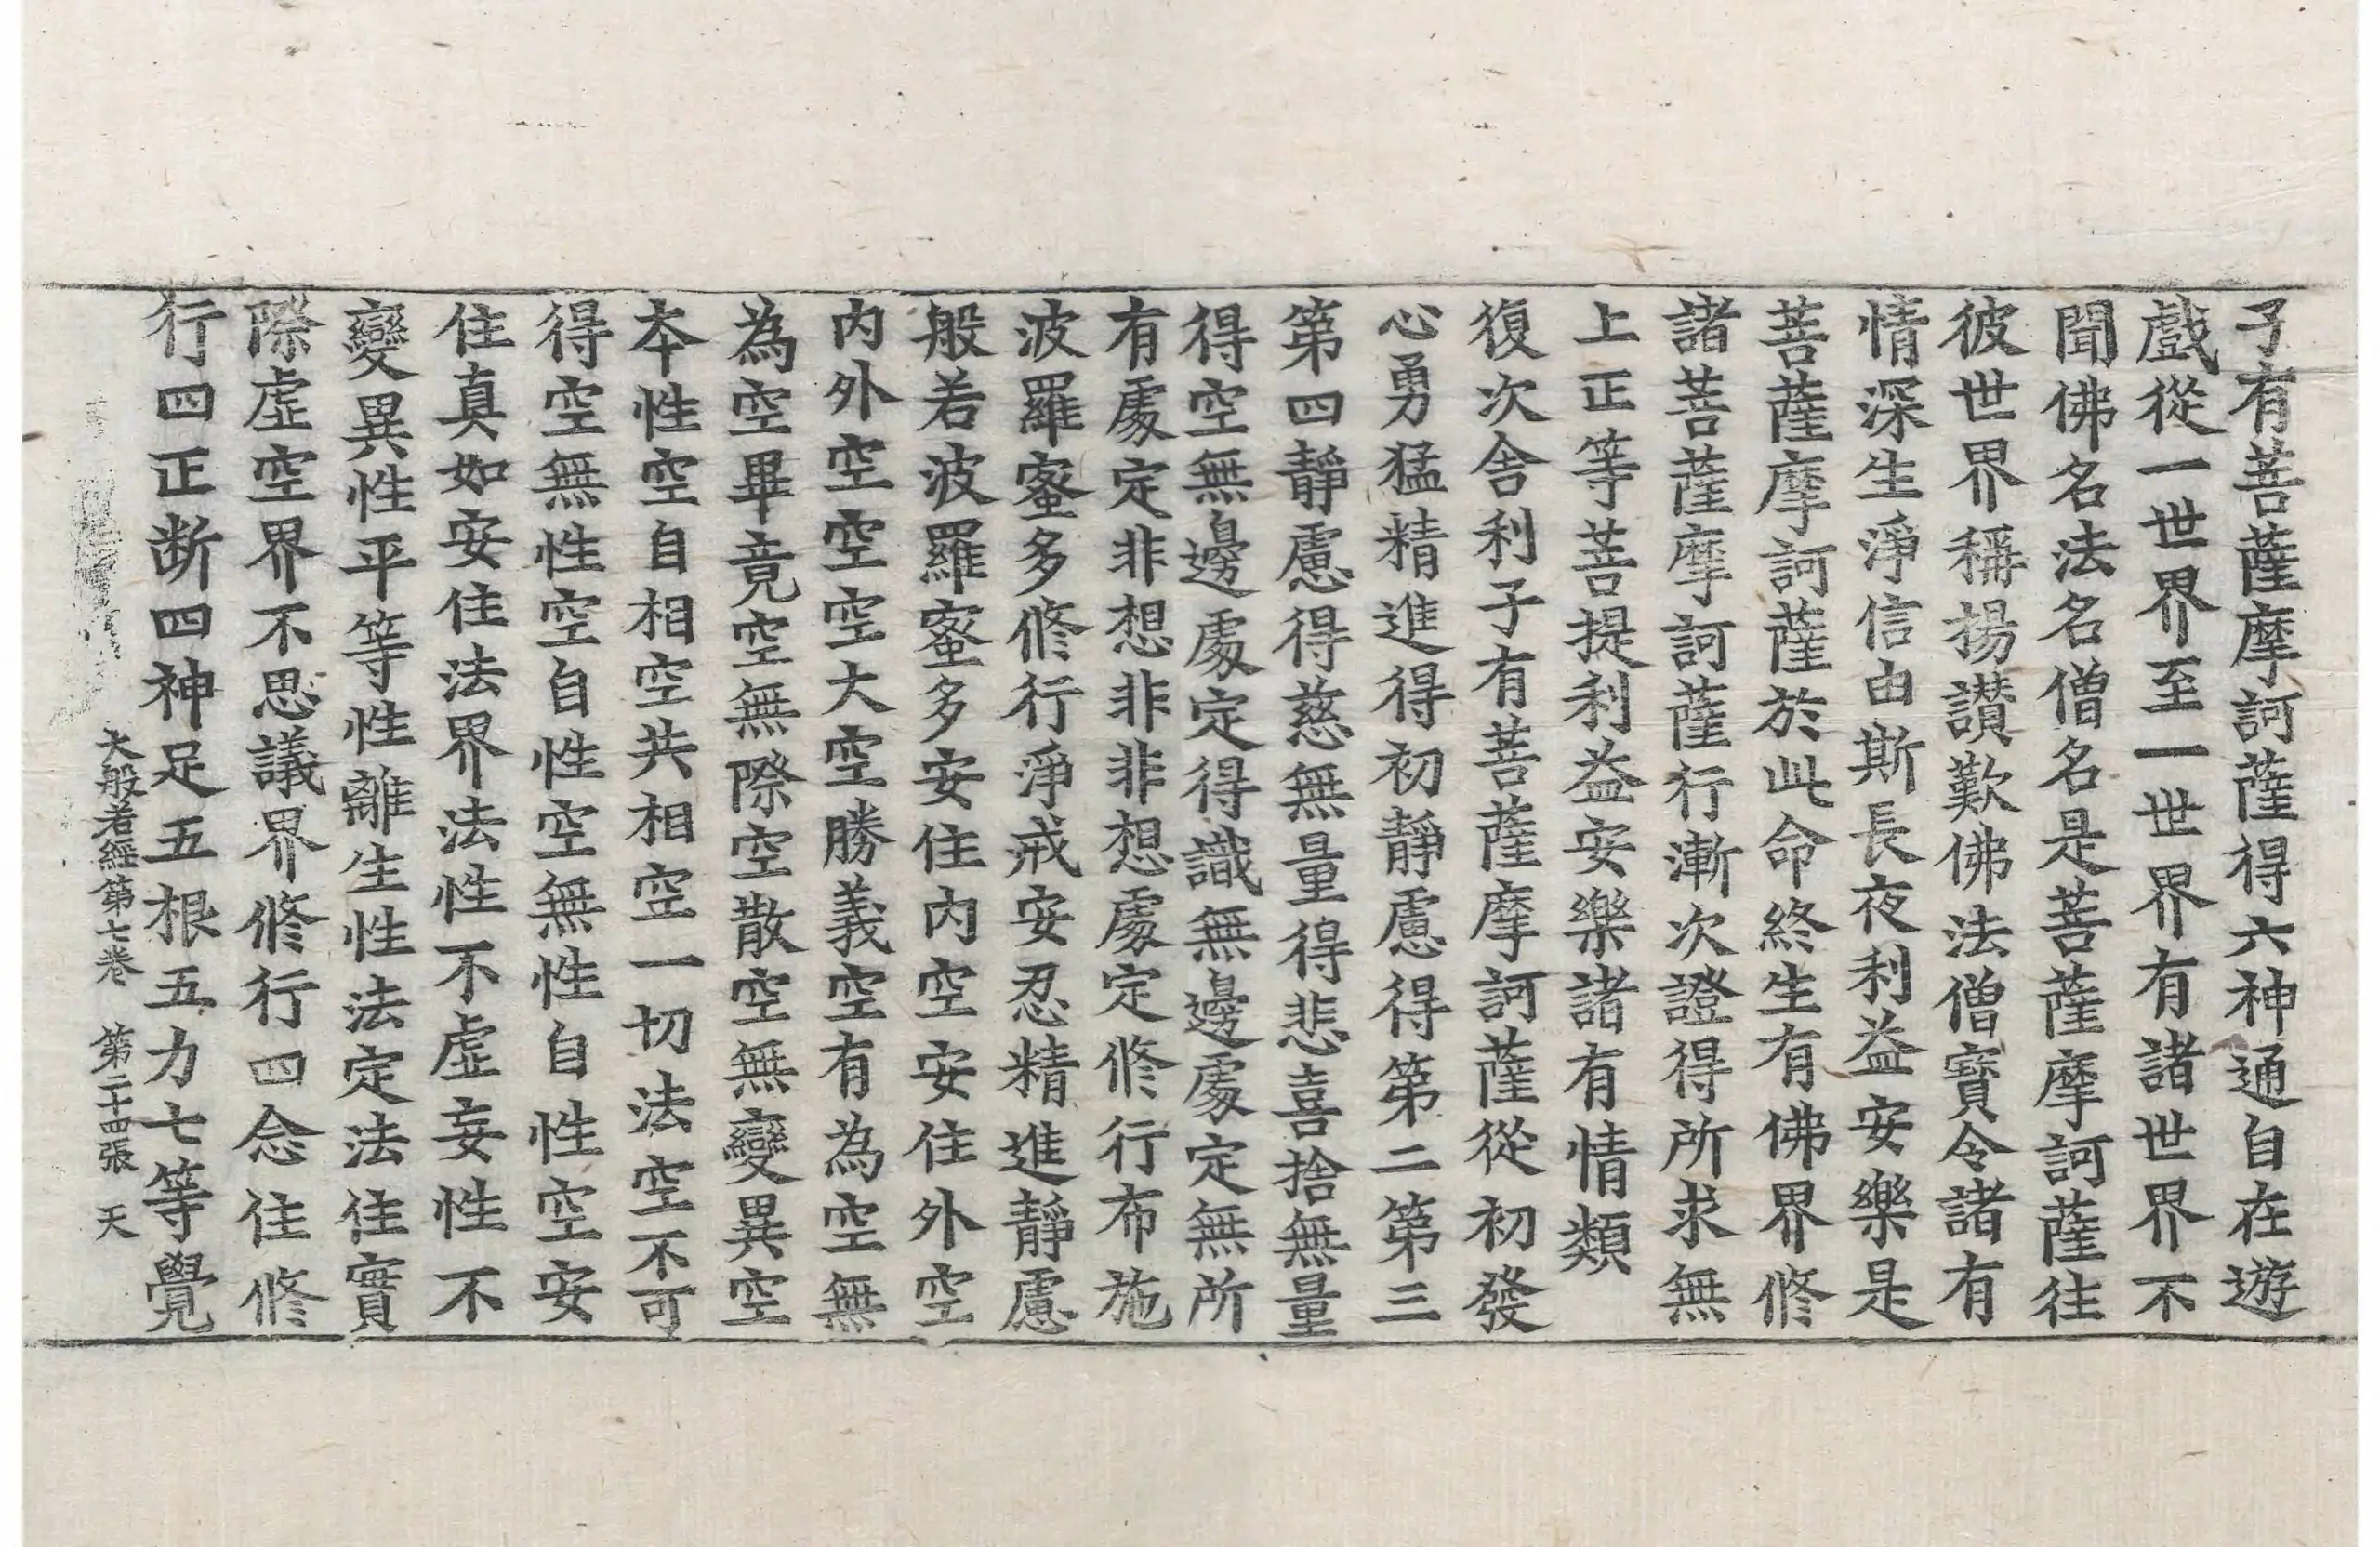 子有菩薩摩訶薩得六神通自在遊
戲從一世界至一世界有諸世界不
聞佛名法名僧名是菩薩摩訶薩往
彼世界稱揚讚歎佛法僧寶令諸有
情深生淨信由斯長夜利益安樂是
菩薩摩訶薩於此命終生有佛界修
諸菩薩摩訶薩行漸次證得所求無
上正等菩提利益安樂諸有情類
復次舍利子有菩薩摩訶薩從初發
心勇猛精進得初靜慮得第二第三
第四靜慮得慈無量得悲喜捨無量
得空無邊處定得識無邊處定無所
有處定非想非非想處定修行布施
波羅蜜多修行淨戒安忍精進靜慮
般若波羅蜜多安住內空安住外空
內外空空空大空勝義空有為空無
為空畢竟空無際空散空無變異空
本性空自相空共相空一切法空不可
得空無性空自性空無性自性空安
住真如安住法界法性不虛妄性不
變異性平等性離生性法定法住實
際虛空界不思議界修行四念住修
行四正断四神足五根五力七等覺
大般若經第七卷 第二十四張 天